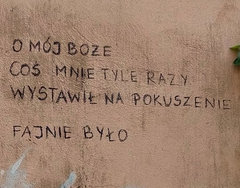 O MÓJ BOŻE
COŚ MNIE TYLE RAZY
WYSTAWIŁ NA POKUSZENIE
FAJNIE BYŁO